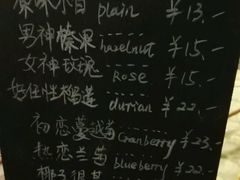 原味不自 plain ¥13.-
男神榛果 hazelnut ¥15.-
女神玫瑰 Rose ¥15.-
好任性榴莲 durrian ¥22.-
初恋蔓越莓 Cranberry ¥23.-
热恋兰莓 blueberry ¥22.-
椰子很